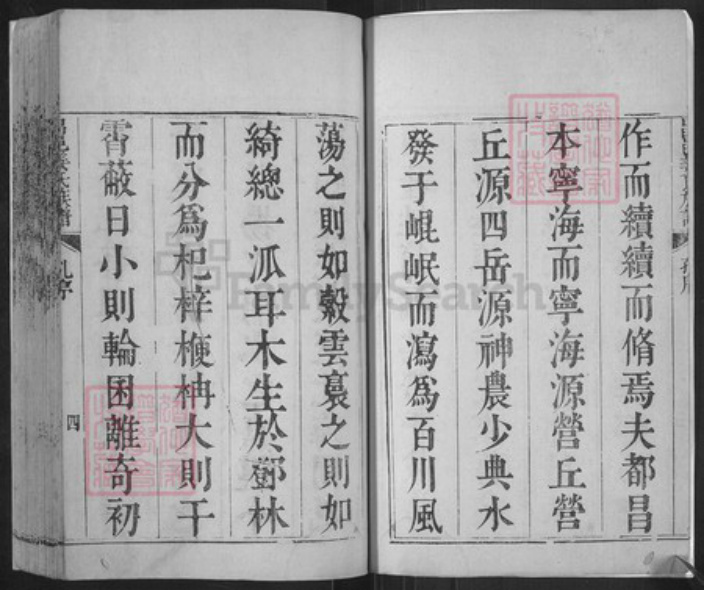 作而續續而脩焉夫都昌
本寧海而寧海源營丘營
丘源四岳源神農少典水
發于崐岷而瀉爲百川風
蕩之則如縠雲裛之則如
綺總一泒耳木生於鄧林
而分爲杞梓楩柟大則干
霄蔽日小則輪囷離奇初
四
FamilySearch